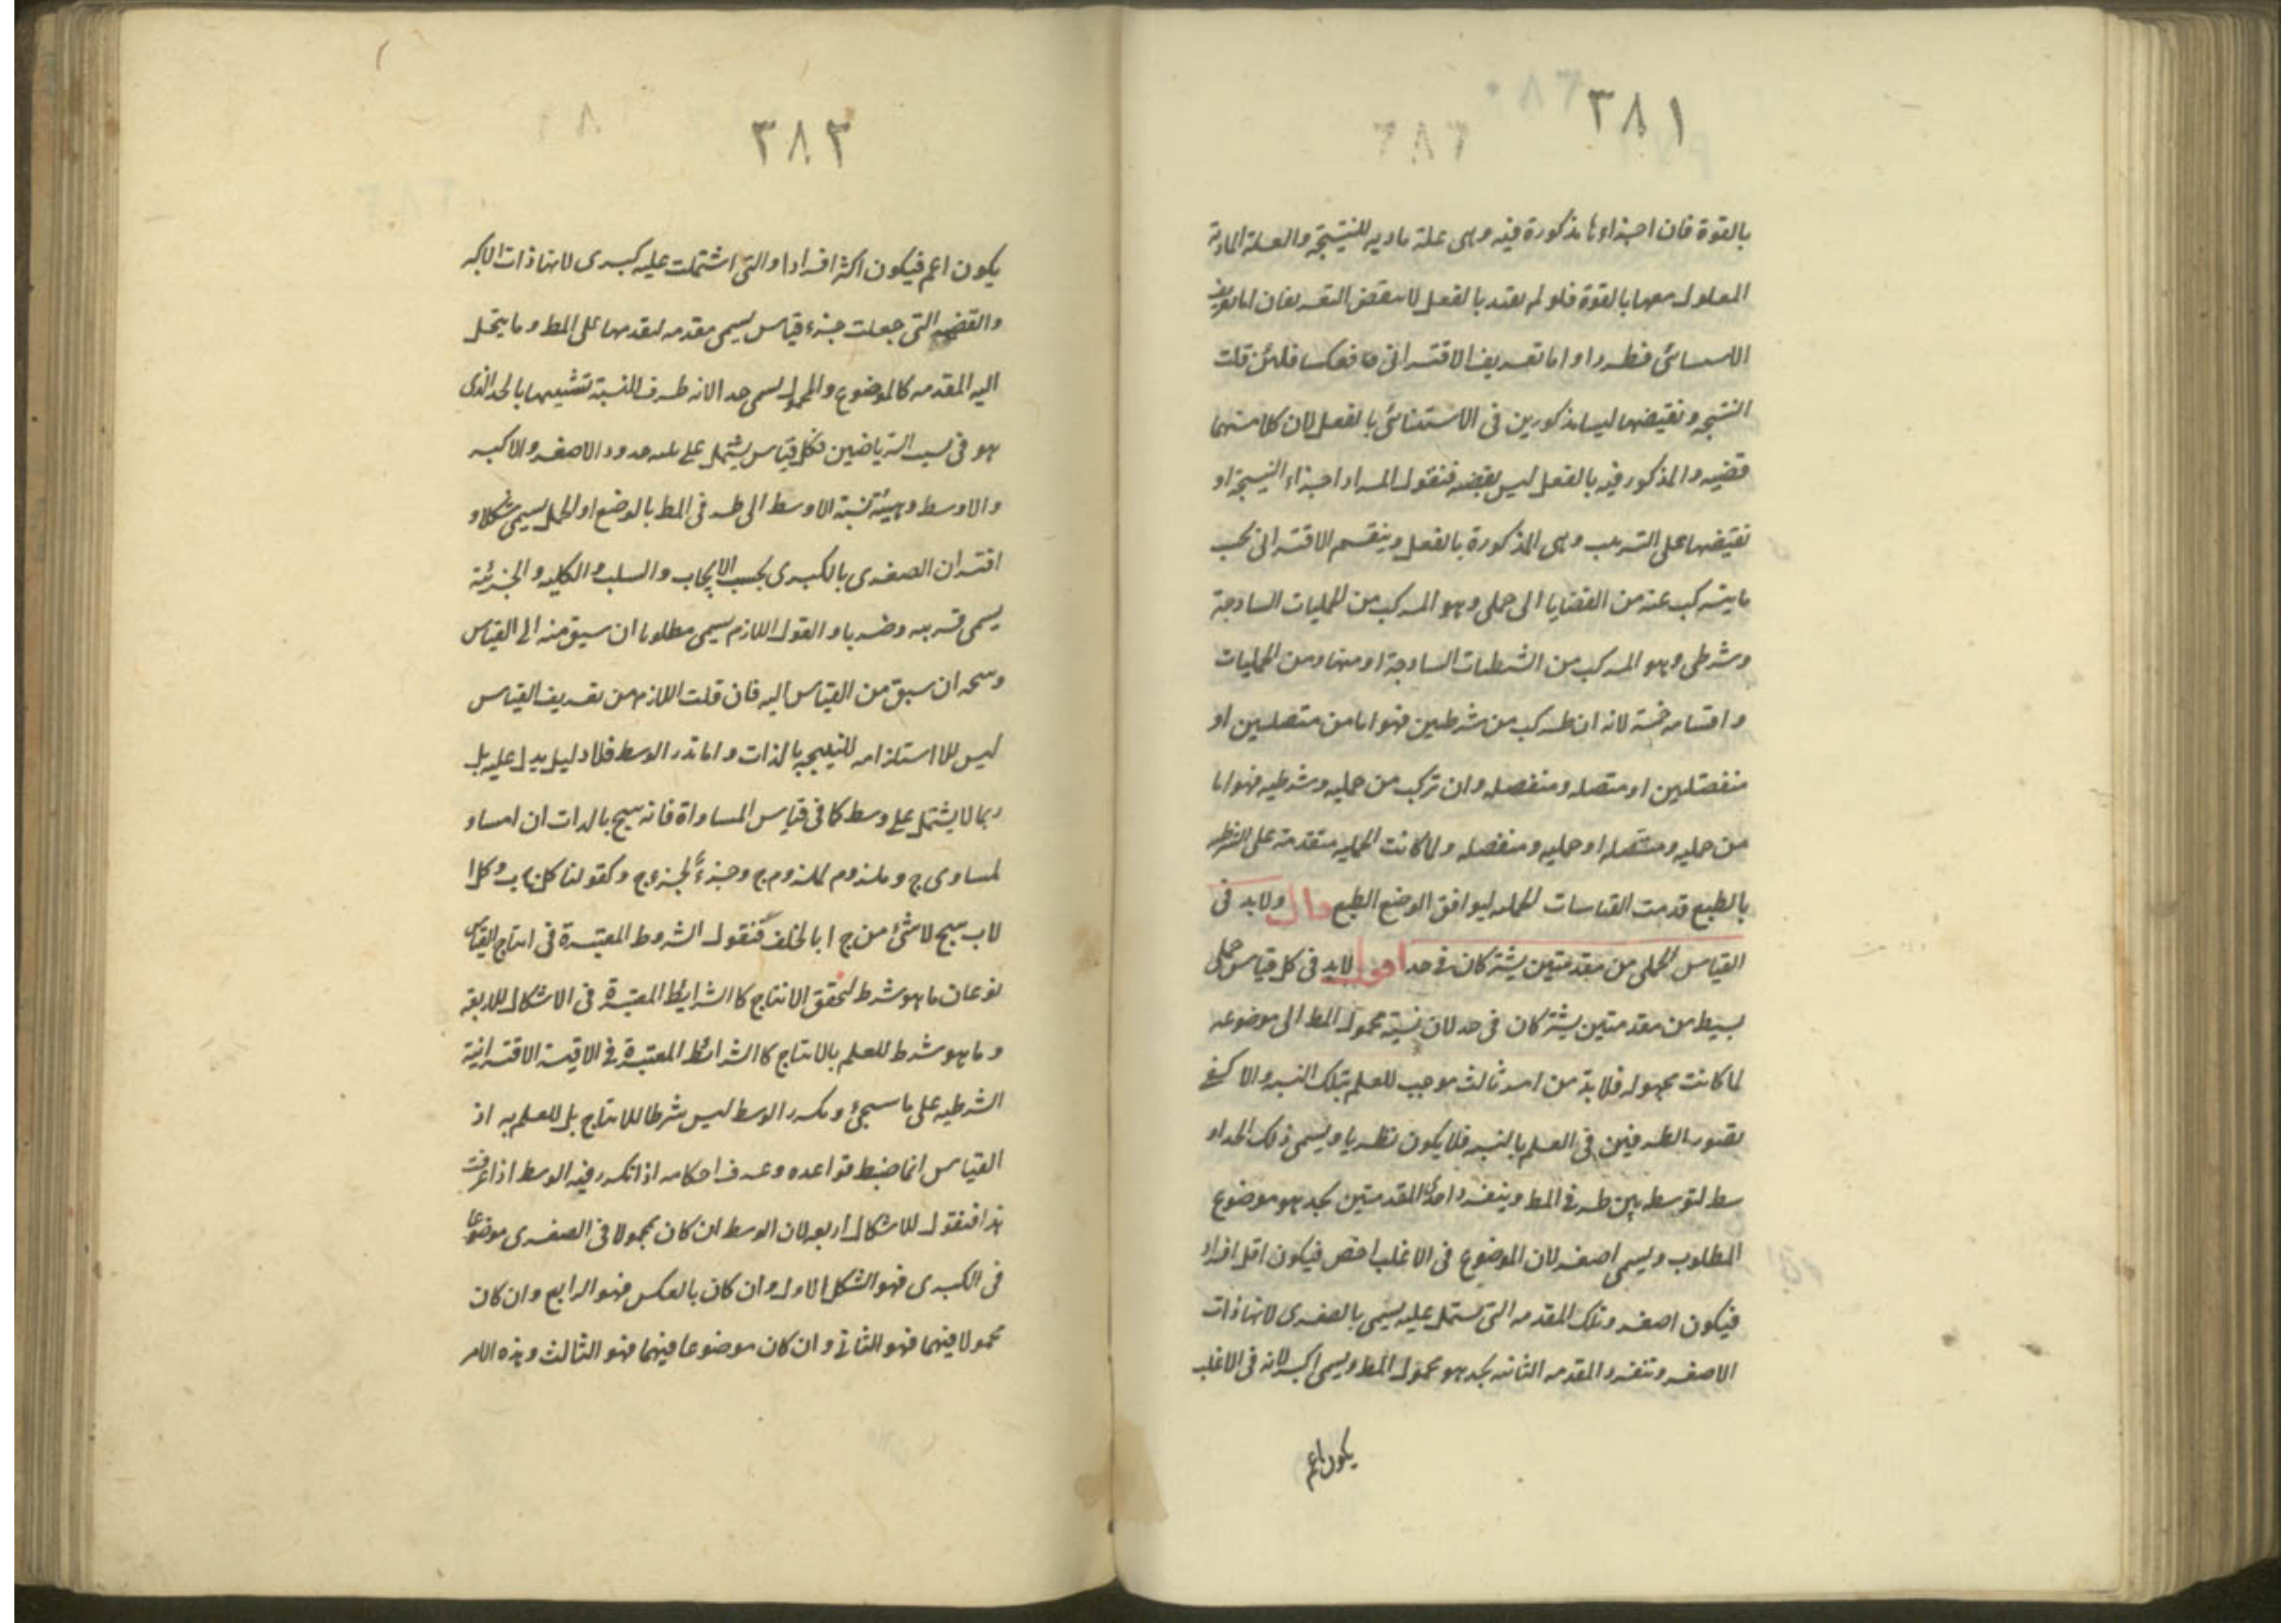 ٣٨١
بالقوة فان اجزاءها مذكورة فيه وهى علة ماديه للنتيجة والعلة المادية
المعلول معها بالقوة فلو لم يقيد بالفعل لانتقض التعريفان اما تعريف
الاستثنائى فطردا واما تعريف الاقترانى فعكسا فلئن قلت
النتيجه ونقيضها ليسا مذكورين فى الاستثنائى بالفعل لان كلا منهما
قضيه والمذكور فيه بالفعل ليس بقضيه فنقول المراد اجزاء النتيجة او
نقيضها على الترتيب وهى المذكورة بالفعل وينقسم الاقترانى بحسب
ما يتركب عنه من القضايا الى حملى وهو المركب من الحمليات الساذجة
وشرطى وهو المركب من الشرطيات الساذجة او منها ومن الحمليات
واقسامه خمسة لانه ان تركب من شرطيين فهو اما من متصلين او
منفصلين او متصله ومنفصله وان تركب من حمليه وشرطيه فهو اما
من حمليه ومتصله او حمليه ومنفصله ولما كانت الحمليه متقدمة على الشرطيه
بالطبع قدمت القياسات الحمليه ليوافق الوضع الطبع قال ولابد فى
القياس الحملى من مقدمتين يشتركان فى حد اقول لابد فى كل قياس حملى
بسيط من مقدمتين يشتركان فى حد لان نسبة محمول المط الى موضوعه
لما كانت مجهوله فلابد من امر ثالث موجب للعلم بتلك النسبه والا كفى
تصور الطرفين فى العلم بالنسبه فلا يكون نظريا ويسمى ذلك الحد او
سط لتوسطه بين طرفى المط وينفرد احدى المقدمتين بحد هو موضوع
المطلوب ويسمى اصغر لان الموضوع فى الاغلب اخص فيكون اقل افراد
فيكون اصغر وتلك المقدمه التى تشتمل عليه يسمى بالصغرى لانها ذات
الاصغر وتنفرد المقدمه الثانيه بحد هو محمول المط ويسمى اكبر لانه فى الاغلب
يكون اعم
٣٨٣
يكون اعم فيكون اكثر افرادا والتى اشتملت عليه كبرى لانها ذات الاكبر
والقضيه التى جعلت جزء قياس يسمى مقدمه لتقدمها على المط وما ينحل
اليه المقدمه كالموضوع والمحمول يسمى حدا لانه طرف للنسبة تشبيها بالحد الذى
هو فى نسب الرياضيين فكل قياس يشتمل على ثلثه حدود الاصغر والاكبر
والاوسط وهيئة نسبة الاوسط الى طرفى المط بالوضع او الحمل يسمى شكلا و
اقتران الصغرى بالكبرى بحسب الايجاب والسلب والكليه والجزئية
يسمى قرينه وضربا والقول اللازم يسمى مطلوبا ان سيق منه الى القياس
ونتيجه ان سبق من القياس اليه فان قلت اللازم من تعريف القياس
ليس الا استلزامه للنتيجه بالذات واما تكرر الوسط فلا دليل يدل عليه بل
ربما لا يشتمل على وسط كما فى قياس المساواة فانه ينتج بالذات ان ا مساو
لمساوى ج وملزوم لملزوم ج وجزء لجزء ج وكقولنا كل ا ب وكلا
لا ب ينتج لا شئ من ج ا بالخلف فنقول الشروط المعتبرة فى انتاج القياس
نوعان ما هو شرط لتحقق الانتاج كالشرايط المعتبرة فى الاشكال الاربعة
وما هو شرط للعلم بالانتاج كالشرائط المعتبرة فى الاقيسة الاقترانية
الشرطيه على ما سيجئ وتكرر الوسط ليس شرطا للانتاج بل للعلم به اذ
القياس انما ضبط قواعده وعرف احكامه اذا تكرر فيه الوسط اذا عرفت
هذا فنقول الاشكال اربعه لان الوسط ان كان محمولا فى الصغرى موضوعا
فى الكبرى فهو الشكل الاول وان كان بالعكس فهو الرابع وان كان
محمولا فيهما فهو الثانى وان كان موضوعا فيهما فهو الثالث وهذه الامر